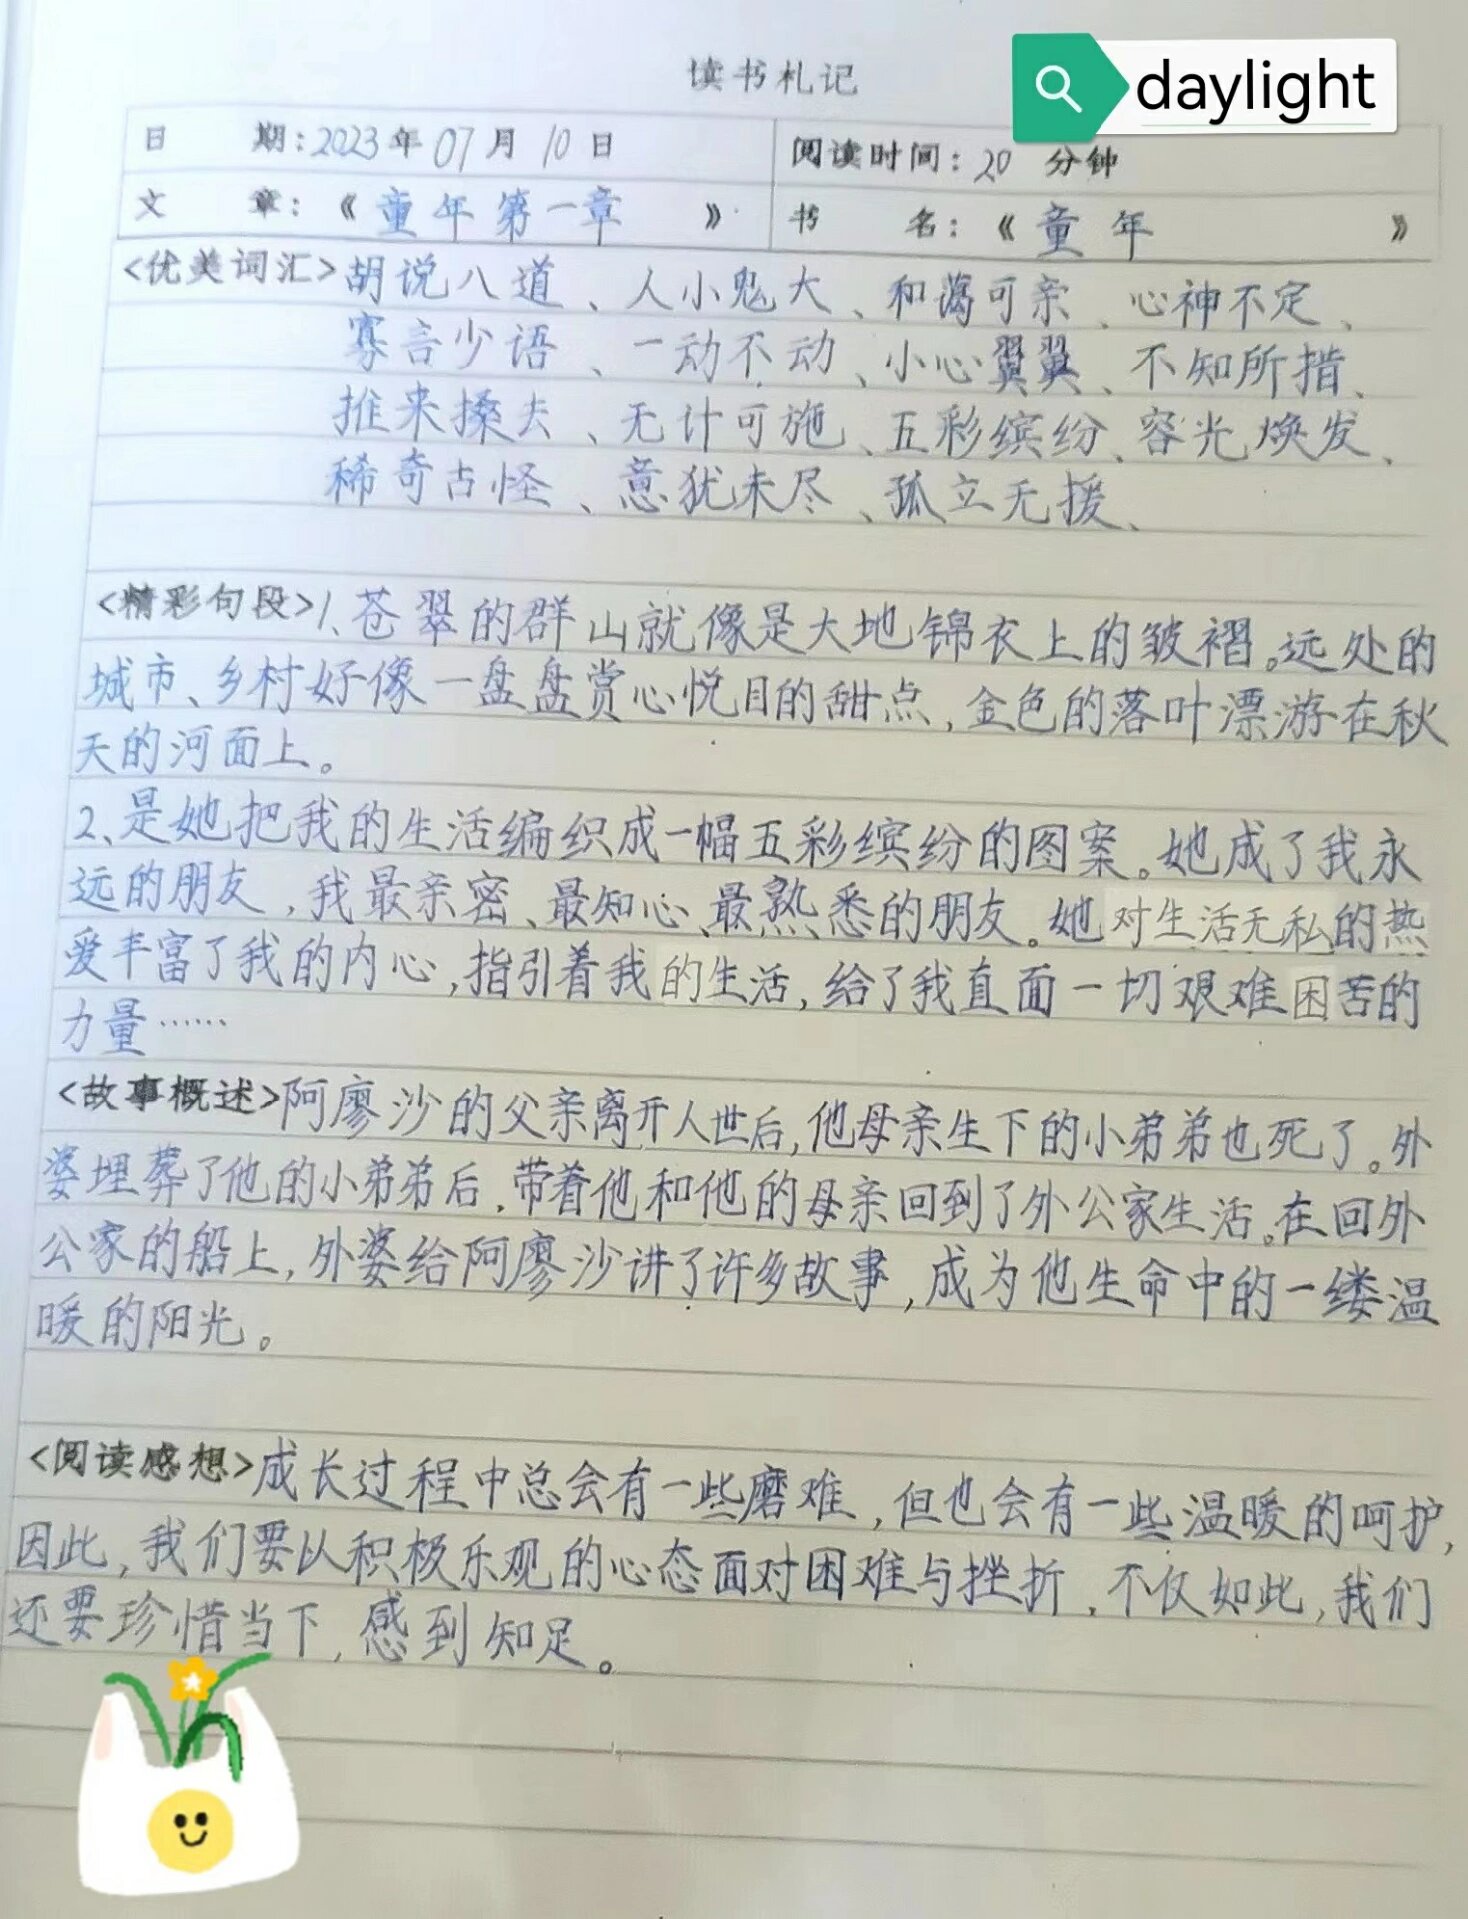 daylight
读书札记
日期:2023年07月10日 阅读时间:20分钟
文章:《童年第一章》 书名:《童年》
<优美词汇>胡说八道、人小鬼大、和蔼可亲、心神不定、
寡言少语、一动不动、小心翼翼、不知所措、
推来搡去、无计可施、五彩缤纷、容光焕发、
稀奇古怪、意犹未尽、孤立无援、
<精彩句段>1、苍翠的群山就像是大地锦衣上的皱褶。远处的
城市、乡村好像一盘盘赏心悦目的甜点,金色的落叶漂游在秋
天的河面上。
2、是她把我的生活编织成一幅五彩缤纷的图案。她成了我永
远的朋友,我最亲密、最知心、最熟悉的朋友。她对生活无私的热
爱丰富了我的内心,指引着我的生活,给了我直面一切艰难困苦的
力量……
<故事概述>阿廖沙的父亲离开人世后,他母亲生下的小弟弟也死了。外
婆埋葬了他的小弟弟后,带着他和他的母亲回到了外公家生活。在回外
公家的船上,外婆给阿廖沙讲了许多故事,成为他生命中的一缕温
暖的阳光。
<阅读感想>成长过程中总会有一些磨难,但也会有一些温暖的呵护,
因此,我们要以积极乐观的心态面对困难与挫折,不仅如此,我们
还要珍惜当下,感到知足。